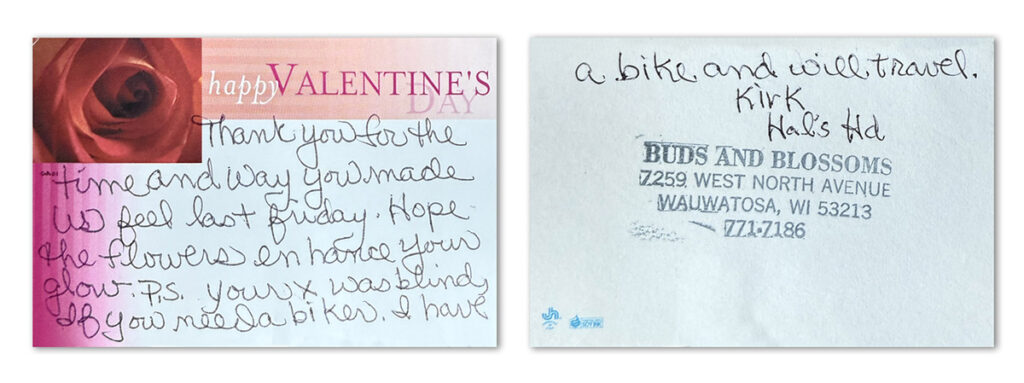 happy VALENTINE'S
DAY
Thank you for the
time and way you made
us feel last friday. Hope
the flowers enhance your
glow. P.S. your x was blind,
If you need a biker. I have
a bike and will travel.
Kirk
Hal's Hd
BUDS AND BLOSSOMS
7259 WEST NORTH AVENUE
WAUWATOSA, WI 53213
771-7186